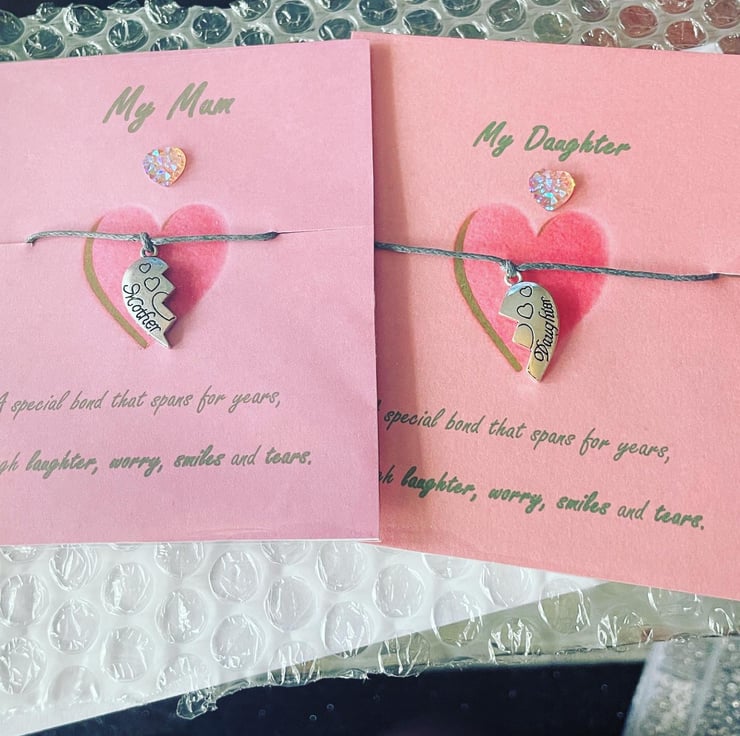 My Mum
Mother
A special bond that spans for years,
gh laughter, worry, smiles and tears.
My Daughter
Daughter
special bond that spans for years,
h laughter, worry, smiles and tears.